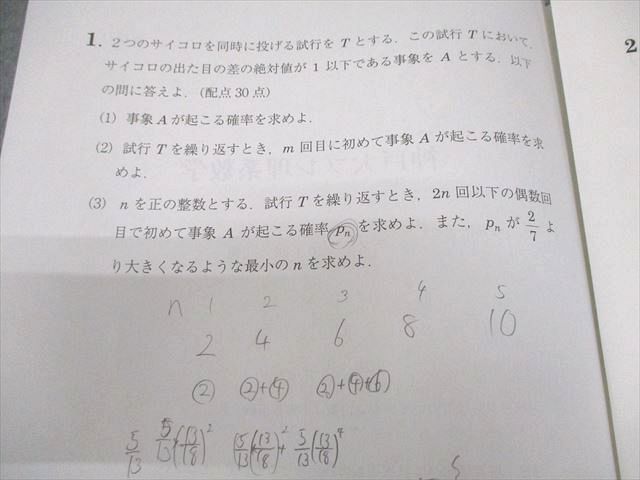 1. 2つのサイコロを同時に投げる試行を T とする. この試行 T において,
サイコロの出た目の差の絶対値が 1 以下である事象を A とする. 以下
の問に答えよ. (配点30点)
(1) 事象 A が起こる確率を求めよ.
(2) 試行 T を繰り返すとき, m 回目に初めて事象 A が起こる確率を求
めよ.
(3) n を正の整数とする. 試行 T を繰り返すとき, 2n 回以下の偶数回
目で初めて事象 A が起こる確率 pn を求めよ. また, pn が 2/7 よ
り大きくなるような最小の n を求めよ.
n 1 2 3 4 5
2 4 6 8 10
② ②+④ ②+④+⑥
5/13 5/13(13/18)^2 5/13(13/18)^2+5/13(13/18)^4
2